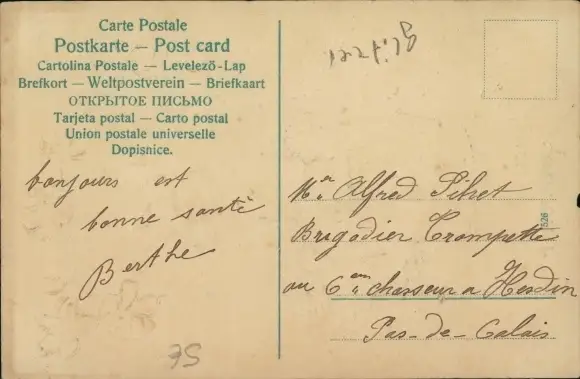 Carte Postale
Postkarte — Post card
Cartolina Postale — Levelező-Lap
Brefkort — Weltpostverein — Briefkaart
ОТКРЫТОЕ ПИСЬМО
Tarjeta postal — Carto postal
Union postale universelle
Dopisnice.
bonjours est
bonne santé
Berthe
Alfred Pihet
Brigadier Trompette
au 6ème chasseur a Hesdin
Pas-de-Calais
526
75